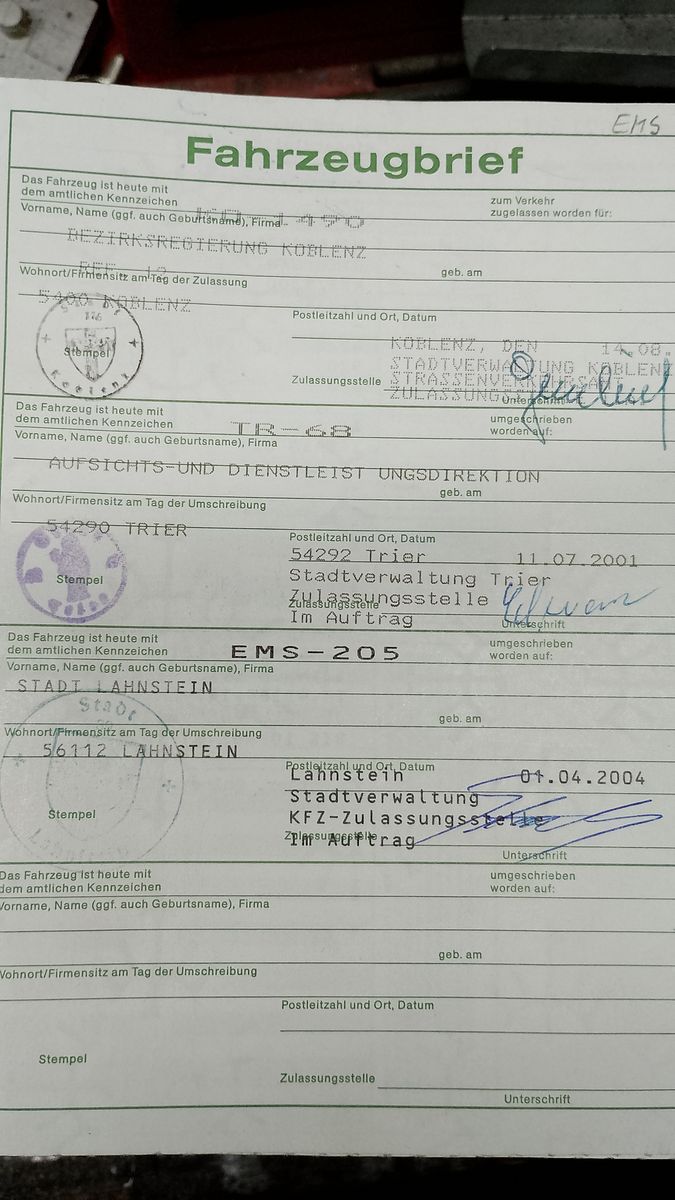 EMS
Fahrzeugbrief
Das Fahrzeug ist heute mit
dem amtlichen Kennzeichen
zum Verkehr
zugelassen worden für:
Vorname, Name (ggf. auch Geburtsname), Firma
BEZIRKSREGIERUNG KOBLENZ
Wohnort/Firmensitz am Tag der Zulassung
geb. am
5400 KOBLENZ
Postleitzahl und Ort, Datum
KOBLENZ, DEN 14.08.
STADTVERWALTUNG KOBLENZ
Stempel
Koblenz
Zulassungsstelle
Unterschrift
Das Fahrzeug ist heute mit
dem amtlichen Kennzeichen
TR-68
umgeschrieben
worden auf:
Vorname, Name (ggf. auch Geburtsname), Firma
AUFSICHTS-UND DIENSTLEIST UNGSDIREKTION
geb. am
Wohnort/Firmensitz am Tag der Umschreibung
54290 TRIER
Postleitzahl und Ort, Datum
54292 Trier 11.07.2001
Stadtverwaltung Trier
Stempel
Zulassungsstelle
Zulassungsstelle
Im Auftrag
Unterschrift
Das Fahrzeug ist heute mit
dem amtlichen Kennzeichen
EMS-205
umgeschrieben
worden auf:
Vorname, Name (ggf. auch Geburtsname), Firma
STADT LAHNSTEIN
Stadt
geb. am
Wohnort/Firmensitz am Tag der Umschreibung
56112 LAHNSTEIN
Postleitzahl und Ort, Datum
Lahnstein 01.04.2004
Stadtverwaltung
Stempel
KFZ-Zulassungsstelle
Zulassungsstelle
Im Auftrag
Unterschrift
Das Fahrzeug ist heute mit
dem amtlichen Kennzeichen
umgeschrieben
worden auf:
Vorname, Name (ggf. auch Geburtsname), Firma
geb. am
Wohnort/Firmensitz am Tag der Umschreibung
Postleitzahl und Ort, Datum
Stempel
Zulassungsstelle
Unterschrift